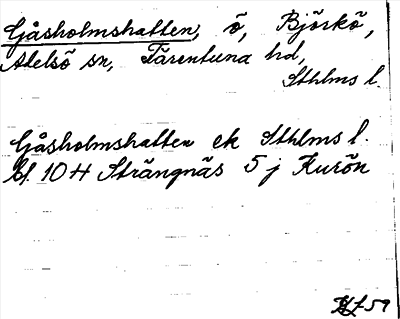 Gåsholmshatten, ö, Björkö,
Adelsö sn, Färentuna hd,
Sthlms l.
Gåsholmshatten ek Sthlms l.
bl. 10 H Strängnäs 5 j Kurön
59